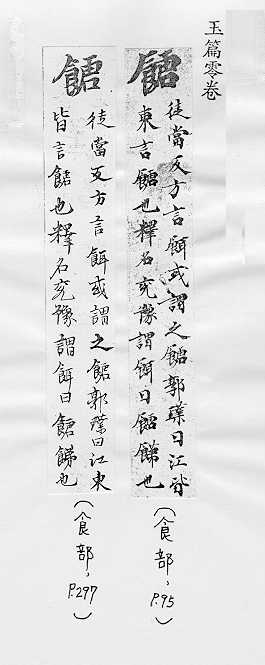 玉篇零卷
餹
徒當反方言餌或謂之餹郭璞曰江
東言餹也釋名兖豫謂餌曰餹䬾也
(食部, P.95)
餹
徒當反方言餌或謂之餹郭璞曰江東
皆言餹也釋名兖豫謂餌曰餹䬾也
(食部, P.297)